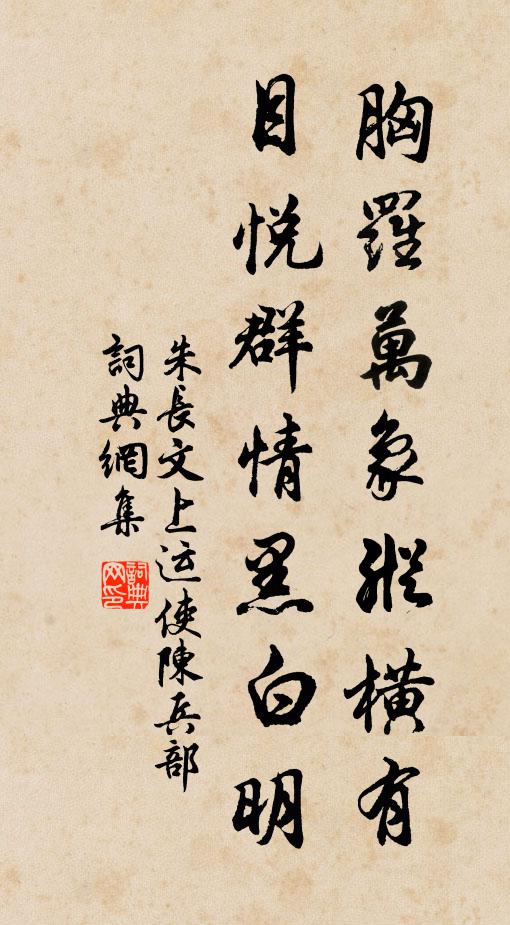 胸羅萬象縱橫有
目悅群情黑白明
朱長文上运使陳兵部
詞典網集
詞典网印